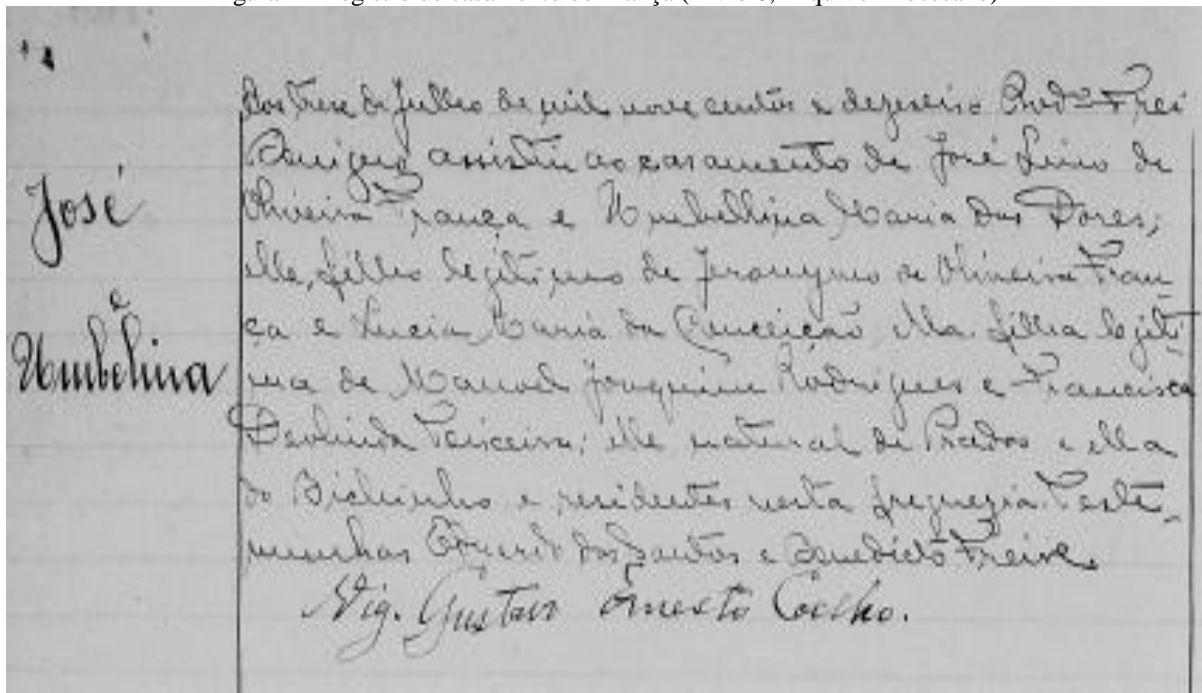 José
e
Umbelina
Aos treze de Julho de mil nove centos e dezeseis o Revd.º Frei
assistiu ao casamento de José Lino de
Oliveira França e Umbellina Maria das Dores;
elle, filho legitimo de Jeronymo de Oliveira Fran-
ça e Lucia Maria da Conceição, ella filha legiti
ma de Manoel Joaquim Rodrigues e Francisca
Teixeira; elle natural de Prados e ella
do Bichinho e residentes nesta freguezia. Teste-
munhas Eduardo dos Santos e Benedicto Freire.
Vig. Gustavo Ernesto Coelho.